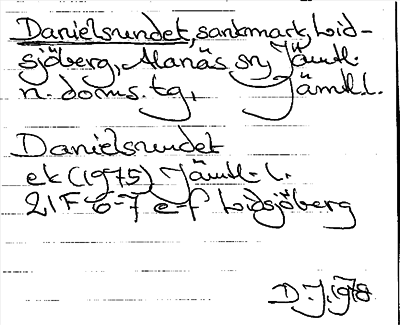 Danielsrundet, sankmark, Lid-
sjöberg, Alanäs sn, Jämtl.
n. doms. tg, Jämtl.l.
Danielsrundet
ek (1975) Jämtl. l.
21F 6-7 e f Lidsjöberg
D.J. 1978